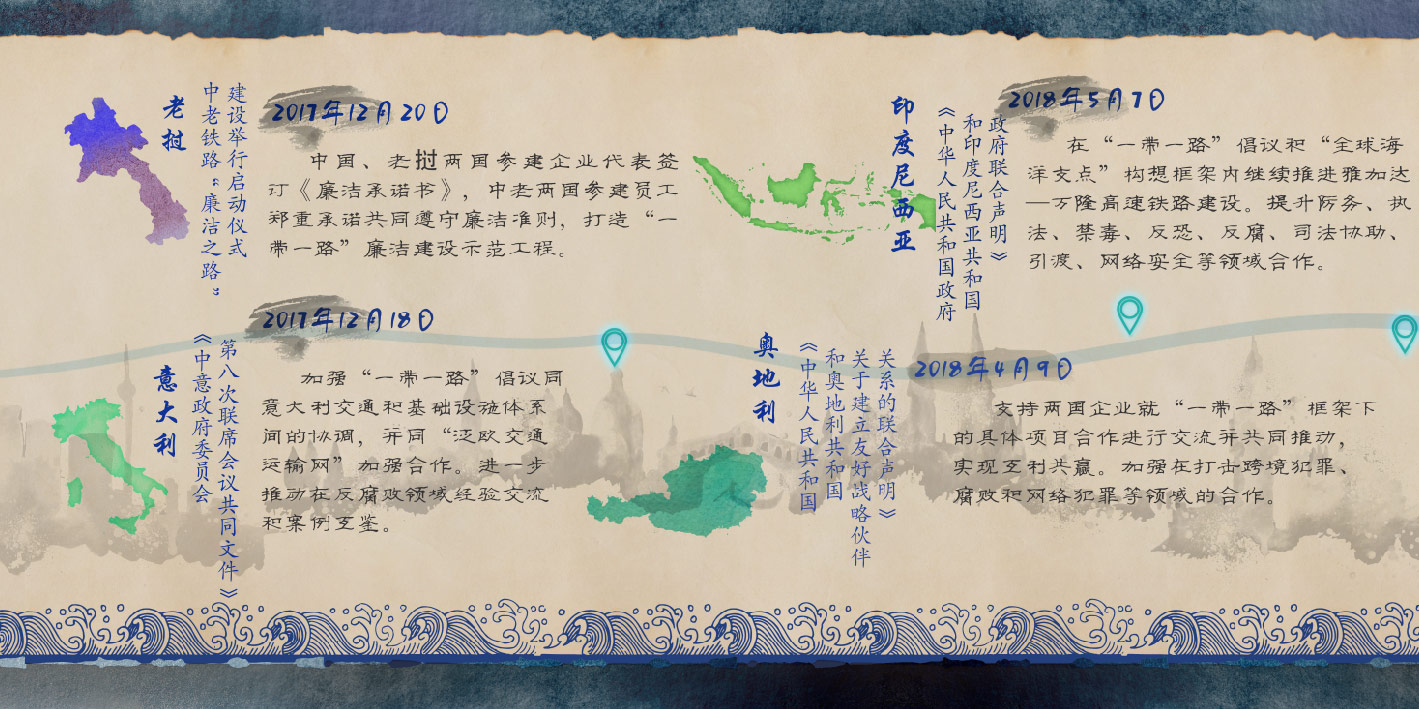 老挝
中老铁路“廉洁之路”
建设举行启动仪式
2017年12月20日
中国、老挝两国参建企业代表签
订《廉洁承诺书》，中老两国参建员工
郑重承诺共同遵守廉洁准则，打造“一
带一路”廉洁建设示范工程。
印度尼西亚
《中华人民共和国政府
和印度尼西亚共和国
政府联合声明》
2018年5月7日
在“一带一路”倡议和“全球海
洋支点”构想框架内继续推进雅加达
—万隆高速铁路建设。提升防务、执
法、禁毒、反恐、反腐、司法协助、
引渡、网络安全等领域合作。
意大利
《中意政府委员会
第八次联席会议共同文件》
2017年12月18日
加强“一带一路”倡议同
意大利交通和基础设施体系
间的协调，并同“泛欧交通
运输网”加强合作。进一步
推动在反腐败领域经验交流
和案例互鉴。
奥地利
《中华人民共和国
和奥地利共和国
关于建立友好战略伙伴
关系的联合声明》
2018年4月9日
支持两国企业就“一带一路”框架下
的具体项目合作进行交流并共同推动，
实现互利共赢。加强在打击跨境犯罪、
腐败和网络犯罪等领域的合作。